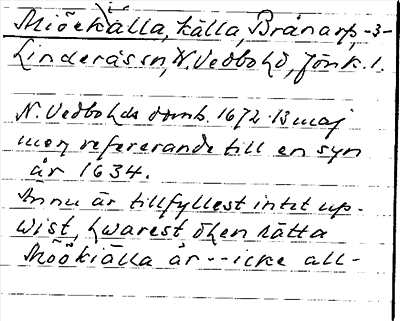 Miöekiälla, källa, Brånarp, -3-
Linderås sn, N. Vedbo hd, Jönk. l.
N. Vedbo hds domb. 1672 13 maj
men refererande till en syn
år 1634.
Ännu är tillfyllest intet up-
wist, hwarest öhen rätta
Möökiälla är -- icke all-